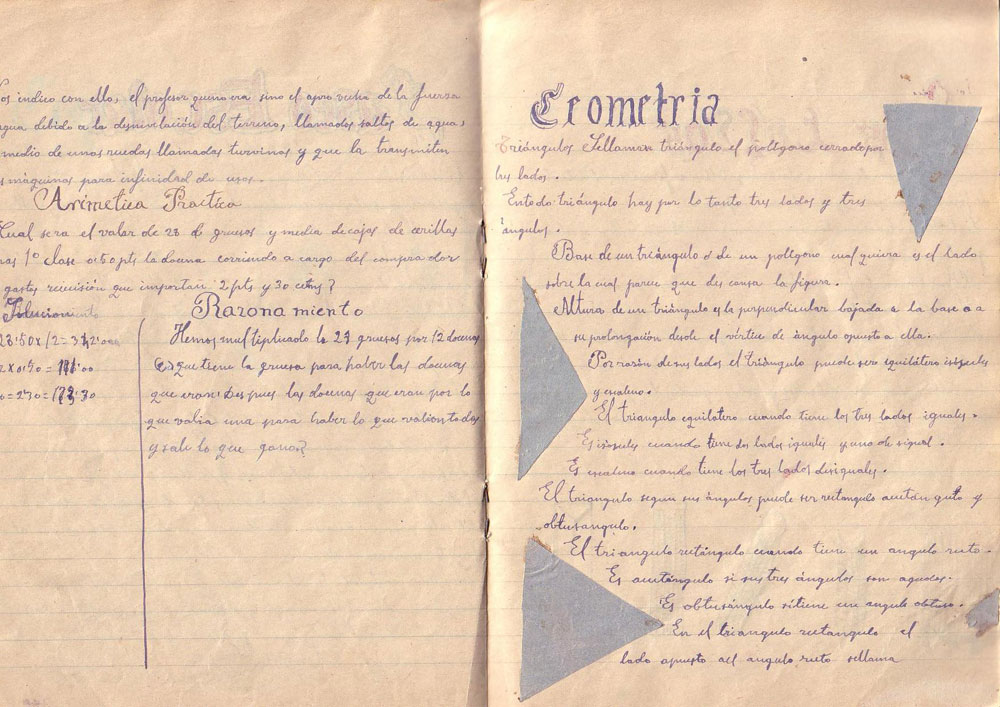 os indico con ello, el profesor que no era sino el aprovecha de la fuerza
agua debido a la desnivelación del terreno, llamados saltos de agua,
medio de unas ruedas llamadas turvinas y que la transmiten
s máquinas para infinidad de usos.
Arimetica Practica
Cual sera el valor de 28 gruesos y media de cajas de cerillas
1º clase 0'50 pts la docena corriendo a cargo del comprador
gastos que importan 2 pts y 30 cetms?
Solucion
28'50 x 12 = 342'00
Razonamiento
Hemos multiplicado lo 28 gruesos por 12 docenas
que tiene la gruesa para haber las docenas
que eran: Despues las docenas que eran por lo
que valia una para haber lo que valian todas
y sale lo que gano?
Geometria
Triángulos Sellaman triángulo el polígono cerrado por
tres lados.
En todo triángulo hay por lo tanto tres lados y tres
ángulos.
Base de un triángulo o de un polígono cualquiera es el lado
sobre la cual parece que descansa la figura.
Altura de un triángulo es la perpendicular bajada a la base o a
su prolongación desde el vértice de ángulo opuesto a ella.
Por razón de sus lados el triángulo puede ser equilátero isósceles
y escaleno.
El triangulo equilatero cuando tiene los tres lados iguales.
Es isósceles cuando tiene dos lados iguales y uno de sigual.
Es escaleno cuando tiene los tres lados desiguales.
El triangulo segun sus ángulos puede ser rectangulo acutangulo y
obtusangulo.
El triangulo rectángulo cuando tiene un angulo recto.
Es acutángulo si sus tres ángulos son agudos.
Es obtusángulo si tiene un angulo obtuso.
En el triangulo rectangulo el
lado opuesto al angulo recto sellama